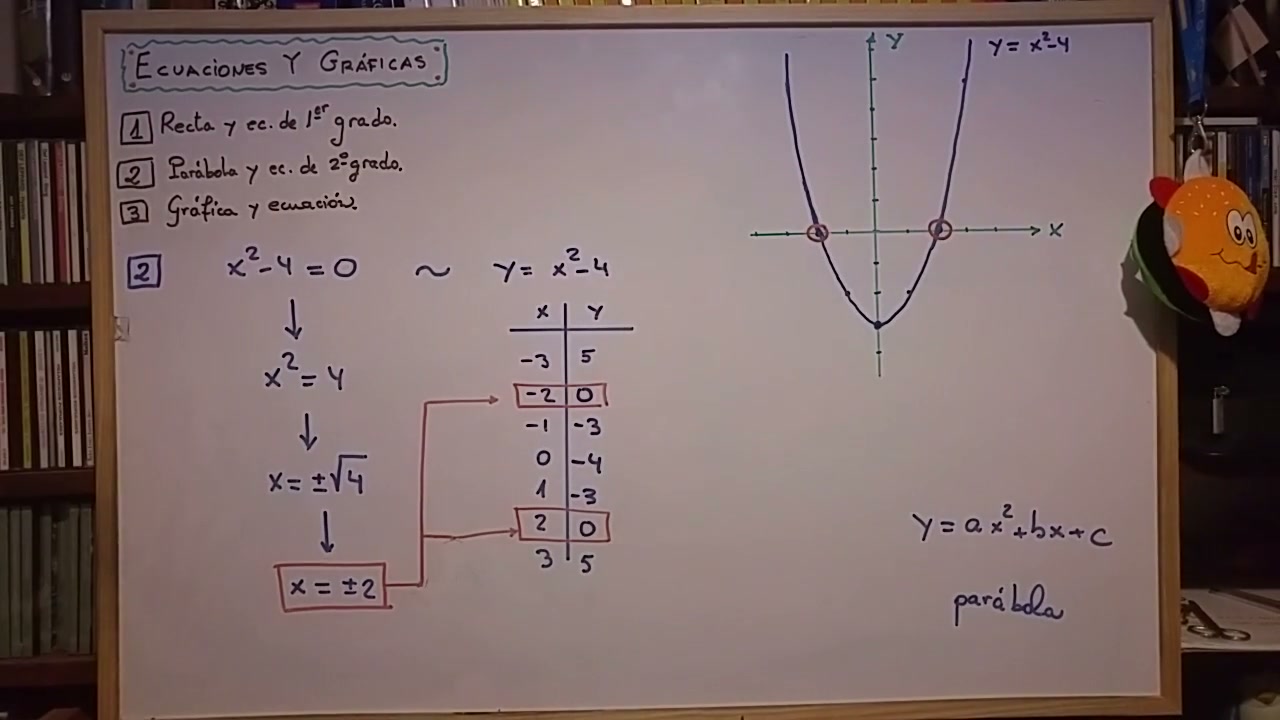 ECUACIONES Y GRÁFICAS
1 Recta y ec. de 1er grado.
2 Parábola y ec. de 2º grado.
3 Gráfica y ecuación.
2 x²-4=0 ~ y= x²-4
x² = 4
x= ±√4
x = ±2
x y
-3 5
-2 0
-1 -3
0 -4
1 -3
2 0
3 5
y
y= x²-4
x
y=ax²+bx+c
parábola